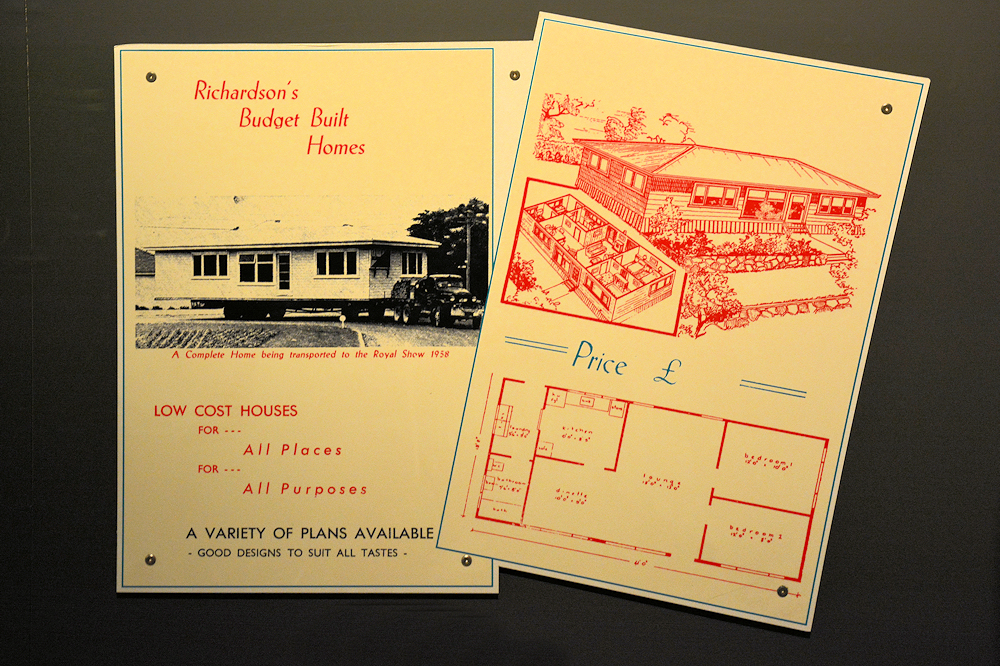 Richardson's
Budget Built
Homes
A Complete Home being transported to the Royal Show 1958
LOW COST HOUSES
FOR ---
All Places
FOR ---
All Purposes
A VARIETY OF PLANS AVAILABLE
- GOOD DESIGNS TO SUIT ALL TASTES -
Price £
kitchen
laundry
bathroom
bath
dinette
lounge
bedroom 1
bedroom 2